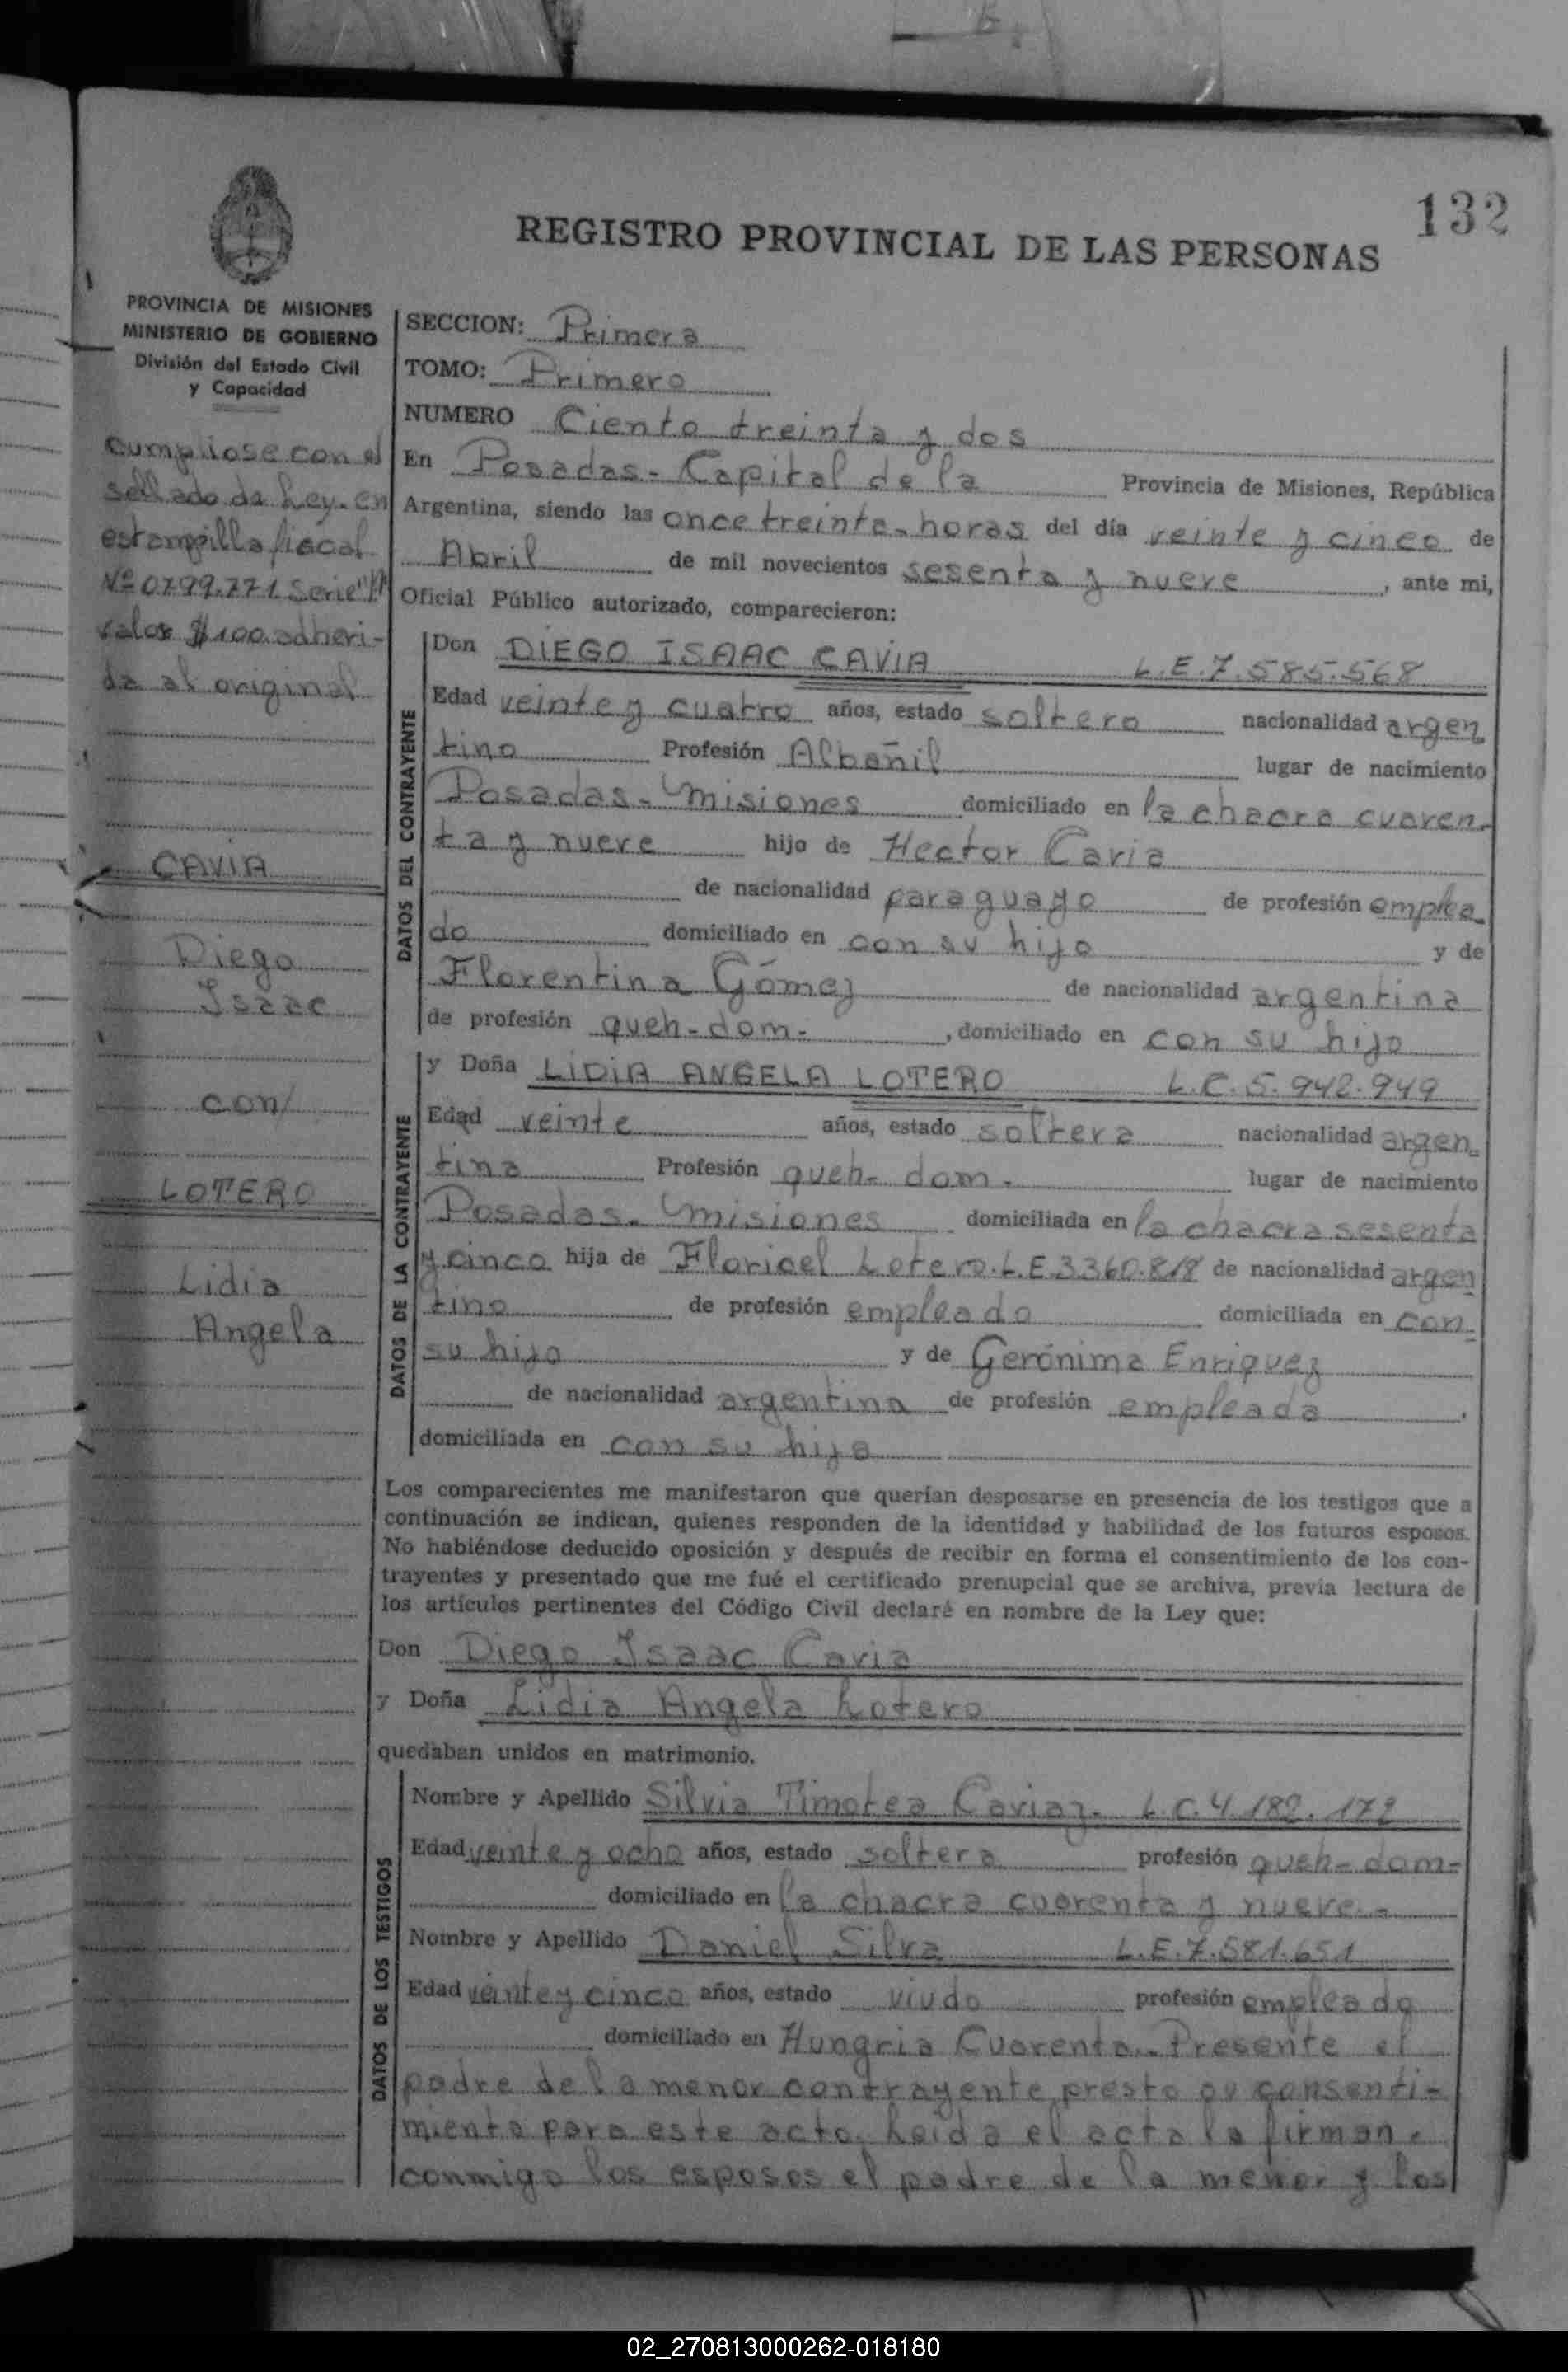 132
REGISTRO PROVINCIAL DE LAS PERSONAS
PROVINCIA DE MISIONES
MINISTERIO DE GOBIERNO
División del Estado Civil
y Capacidad
cumpliose con el
sellado de Ley. en
estampilla fiscal
Nº 0799.771 Serie "A"
valor $100. adheri-
da al original
CAVIA
Diego
Isaac
con/
LOTERO
Lidia
Angela
SECCION: Primera
TOMO: Primero
NUMERO Ciento treinta y dos
En Posadas - Capital de la Provincia de Misiones, República
Argentina, siendo las once treinta - horas del día veinte y cinco de
Abril de mil novecientos sesenta y nueve, ante mi,
Oficial Público autorizado, comparecieron:
DATOS DEL CONTRAYENTE
Don DIEGO ISAAC CAVIA L.E.7.585.568
Edad veinte y cuatro años, estado soltero nacionalidad argen
tino Profesión Albañil lugar de nacimiento
Posadas - Misiones domiciliado en la chacra cuaren-
ta y nueve hijo de Hector Cavia
de nacionalidad paraguayo de profesión emplea-
do domiciliado en con su hijo y de
Florentina Gómez de nacionalidad argentina
de profesión queh-dom-, domiciliado en con su hijo
DATOS DE LA CONTRAYENTE
y Doña LIDIA ANGELA LOTERO L.C.5.942.949
Edad veinte años, estado soltera nacionalidad argen-
tina Profesión queh- dom- lugar de nacimiento
Posadas - Misiones domiciliada en la chacra sesenta
y cinco hija de Floricel Lotero. L.E.3.360.818 de nacionalidad argen
tino de profesión empleado domiciliada en con-
su hijo y de Gerónima Enriquez
de nacionalidad argentina de profesión empleada,
domiciliada en con su hija
Los comparecientes me manifestaron que querían desposarse en presencia de los testigos que a
continuación se indican, quienes responden de la identidad y habilidad de los futuros esposos.
No habiéndose deducido oposición y después de recibir en forma el consentimiento de los con-
trayentes y presentado que me fué el certificado prenupcial que se archiva, previa lectura de
los artículos pertinentes del Código Civil declaré en nombre de la Ley que:
Don Diego Isaac Cavia
y Doña Lidia Angela Lotero
quedaban unidos en matrimonio.
DATOS DE LOS TESTIGOS
Nombre y Apellido Silvia Timotea Caviaz- L.C.4.182.172
Edad veinte y ocho años, estado soltera profesión queh- dom-
domiciliado en la chacra cuarenta y nueve.-
Nombre y Apellido Daniel Silva L.E.7.581.651
Edad veinte y cinco años, estado viudo profesión empleado
domiciliado en Hungria Cuarenta.- Presente el
padre de la menor contrayente presto su consenti-
miento para este acto. Leida el acta la firman.
conmigo los esposos el padre de la menor y los
02_270813000262-018180